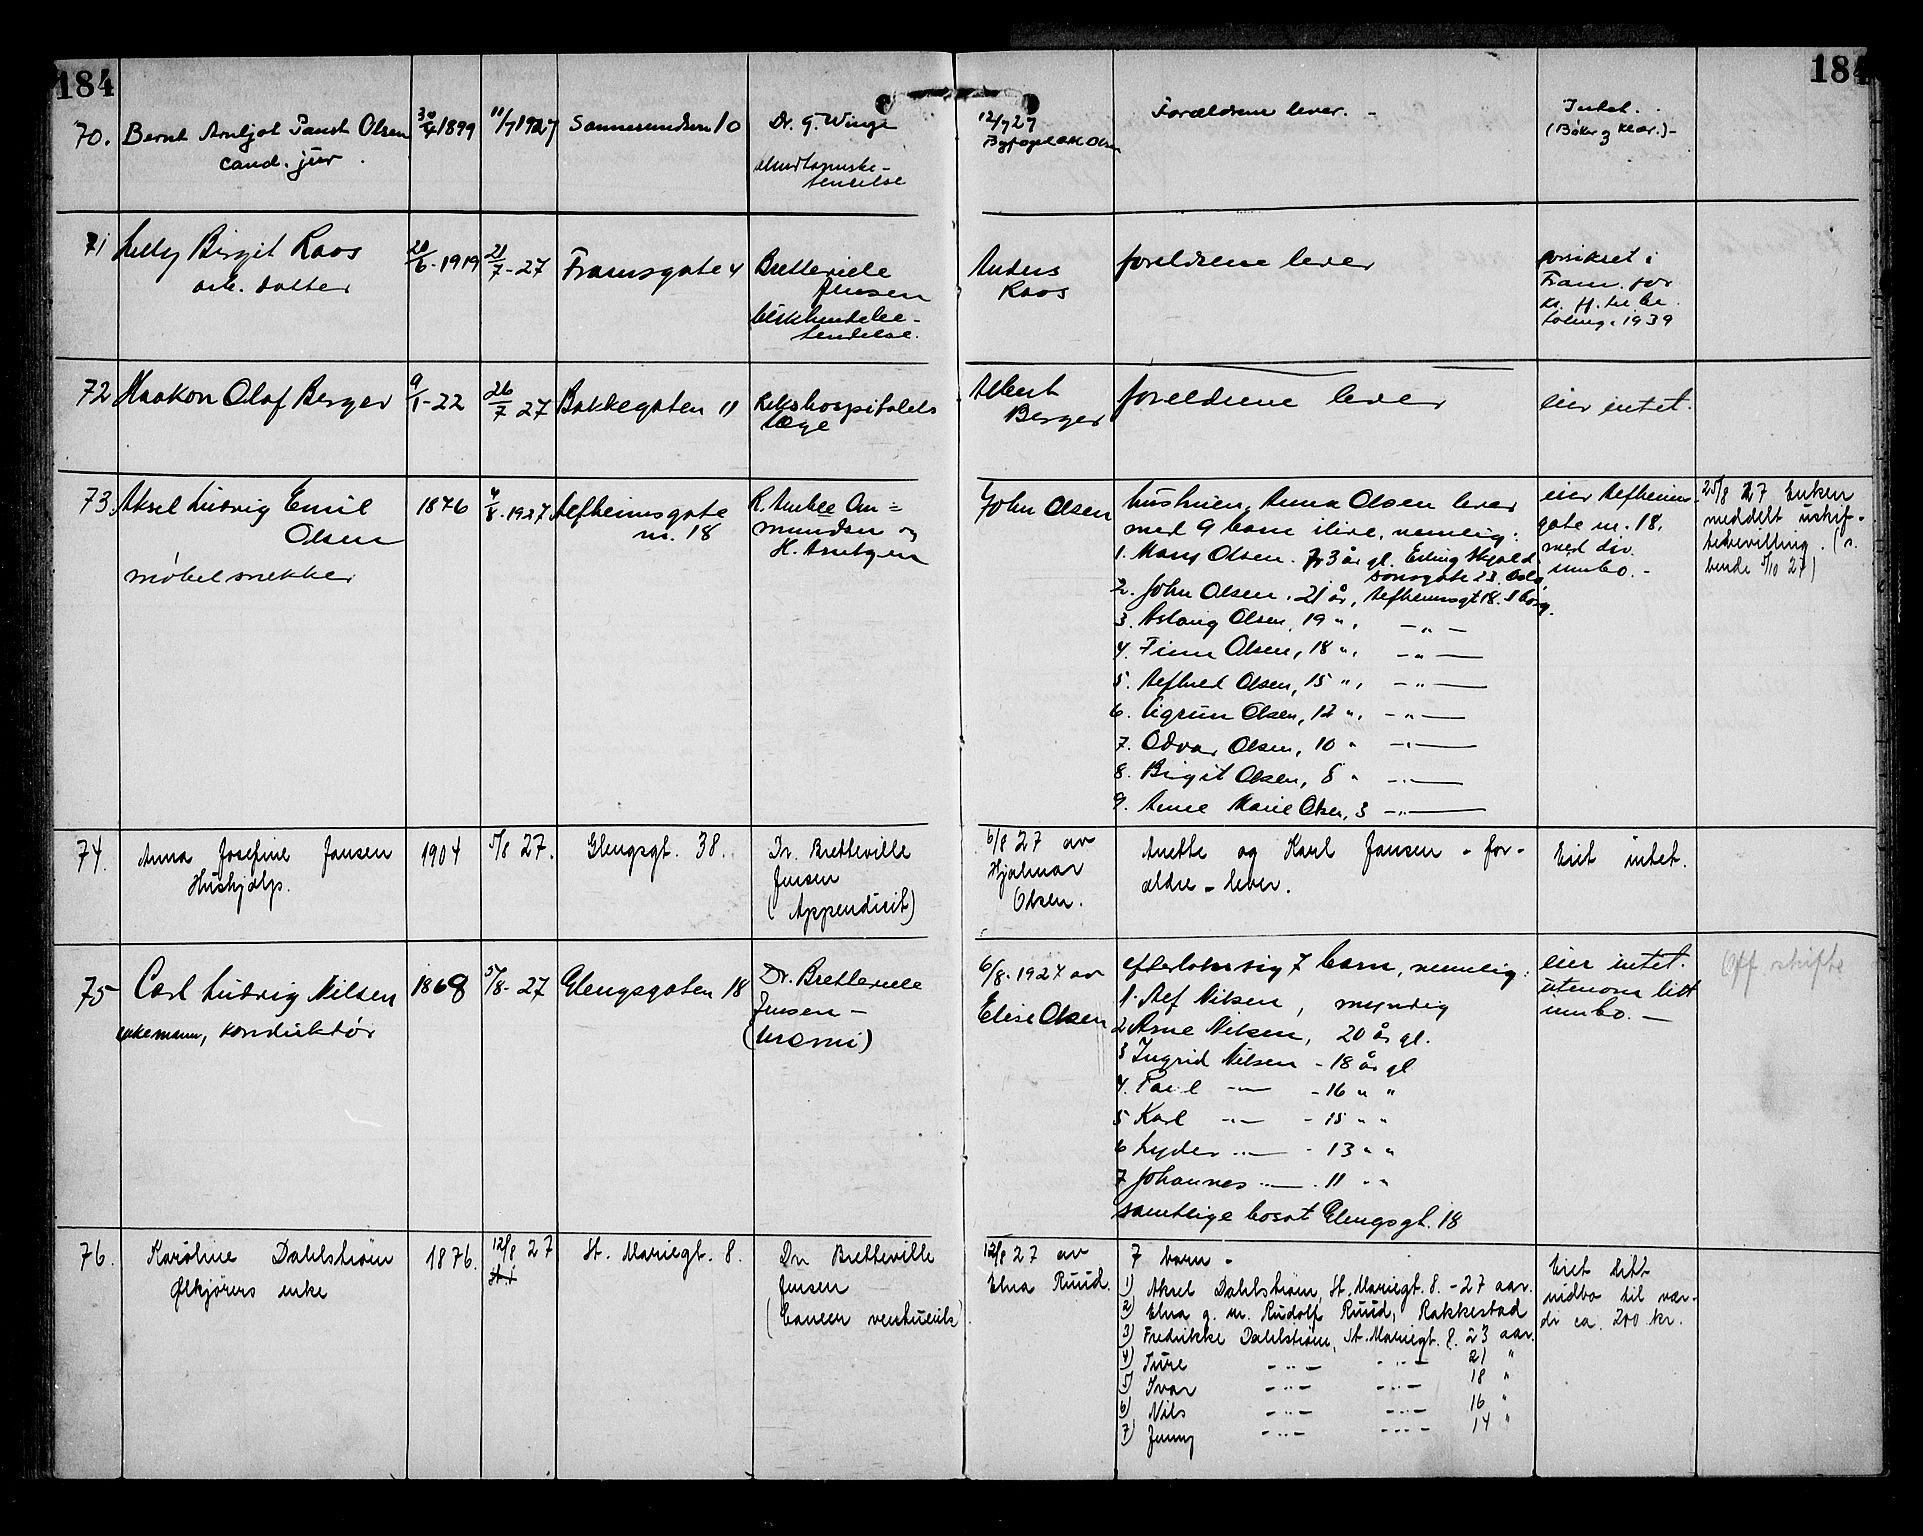 184
184
70. Bernt Arnljot Paust Olsen 30/4 1899 11/7 1927 10 Dr. G. Winge 12/7 27 Forældrene lever. - Intet.
cand. jur. Olsen (Bøker & klær.) -
71 Lelly Birgit Raos 20/6 - 1919 21/7 - 27 Framsgate 4 Bretteville Anders foreldrene lever forsikret i
arb. datter Jensen Raos Fram. for
Blindtarmsbe- kr. til be
tendelse. taling. 1939
72 Haakon Olaf Berger 9/1 - 22 26/7 27 Bakkegaten 11 Rikshospitalets Albert foreldrene lever eier intet.
læge Berger
73. Aksel Ludvig Emil 1876 4/8 - 1927 Alfheimsgate R. Amble Om= John Olsen hustruen, Anna Olsen lever eier Alfheims- 25/8 27 Enken
Olsen nr. 18 mundsen og med 9 barn ilive, nemlig: gate nr. 18. meddelt uskif-
møbelsnekker H. Arntzen 1. Mary Olsen. 23 år gl. Erling Skjald med div. tebevilling.
sonsgate 23. Oslo innbo. - 5/10 27)
2. John Olsen. 21 år, Alfheimsgt 18. S borg.
3. Aslaug Olsen, 19 ", - " -
4. Finn Olsen, 18 ", - " -
5. Alfhild Olsen, 15 ", - " -
6. Sigrun Olsen, 12 ", - " -
7. Odvar Olsen, 10 " - " -
8. Birgit Olsen, 8 " - " -
9. Anne Marie Olsen, 3 - " -
74. Anna Josefine Jansen 1904 5/8 27. Glengsgt. 38. Dr. Bretteville 6/8 27 av Anette og Karl Jansen - for- Eiet intet.
Hushjælp. Jensen Hjalmar ældre - lever.
(Appendicit) Olsen.
75 Carl Ludvig Nilsen 1868 5/8 - 27 Glengsgaten 18 Dr. Bretteville 6/8 - 1927 av efterlater sig 7 barn, nemlig: eier intet. Off skifte
enkemann, konduktør Jensen - Elise Olsen 1. Alf Nilsen, myndig utenom litt
(Uræmi) 2 Arne Nilsen, 20 år gl. innbo. -
3 Ingrid Nilsen - 18 år gl
4. Paul - " - - 16 " "
5 Karl - " - - 15 " "
6 Lyder - " - - 13 " "
7 Johannes - " - - 11 " "
samtlige bosat Glengsgt. 18
76. Karoline Dahlstrøm 1876. 12/8 27 St. Mariegt. 8. Dr. Bretteville 12/8 27 av 7 barn - Eiet litt
Ølkjørers enke Jensen Elna Ruud. 1) Aksel Dahlstrøm, St. Mariegt. 8. - 27 aar. indbo til vær-
(Cancer ventriculi) 2) Elna g. m. Rudolf Ruud, Rakkestad di ca. 200 kr.
3) Fredrikke Dahlstrøm, St. Mariegt. 8. 23 aar.
4) Ture - " - - " - 21 "
5) Ivar - " - - " - 18 "
6) Nils - " - - " - 16 "
7) Jenny - " - - " - 14 "